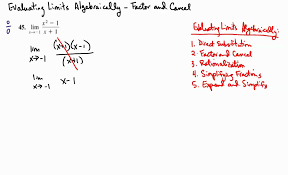 Evaluating Limits Algebraically - Factor and Cancel
0/0
45. lim x→-1 x² - 1 / x + 1
lim x→-1 (x+1)(x-1) / (x+1)
lim x→-1 x-1
Evaluating Limits Algebraically:
1. Direct Substitution
2. Factor and Cancel
3. Rationalization
4. Simplifying Fractions
5. Expand and Simplify